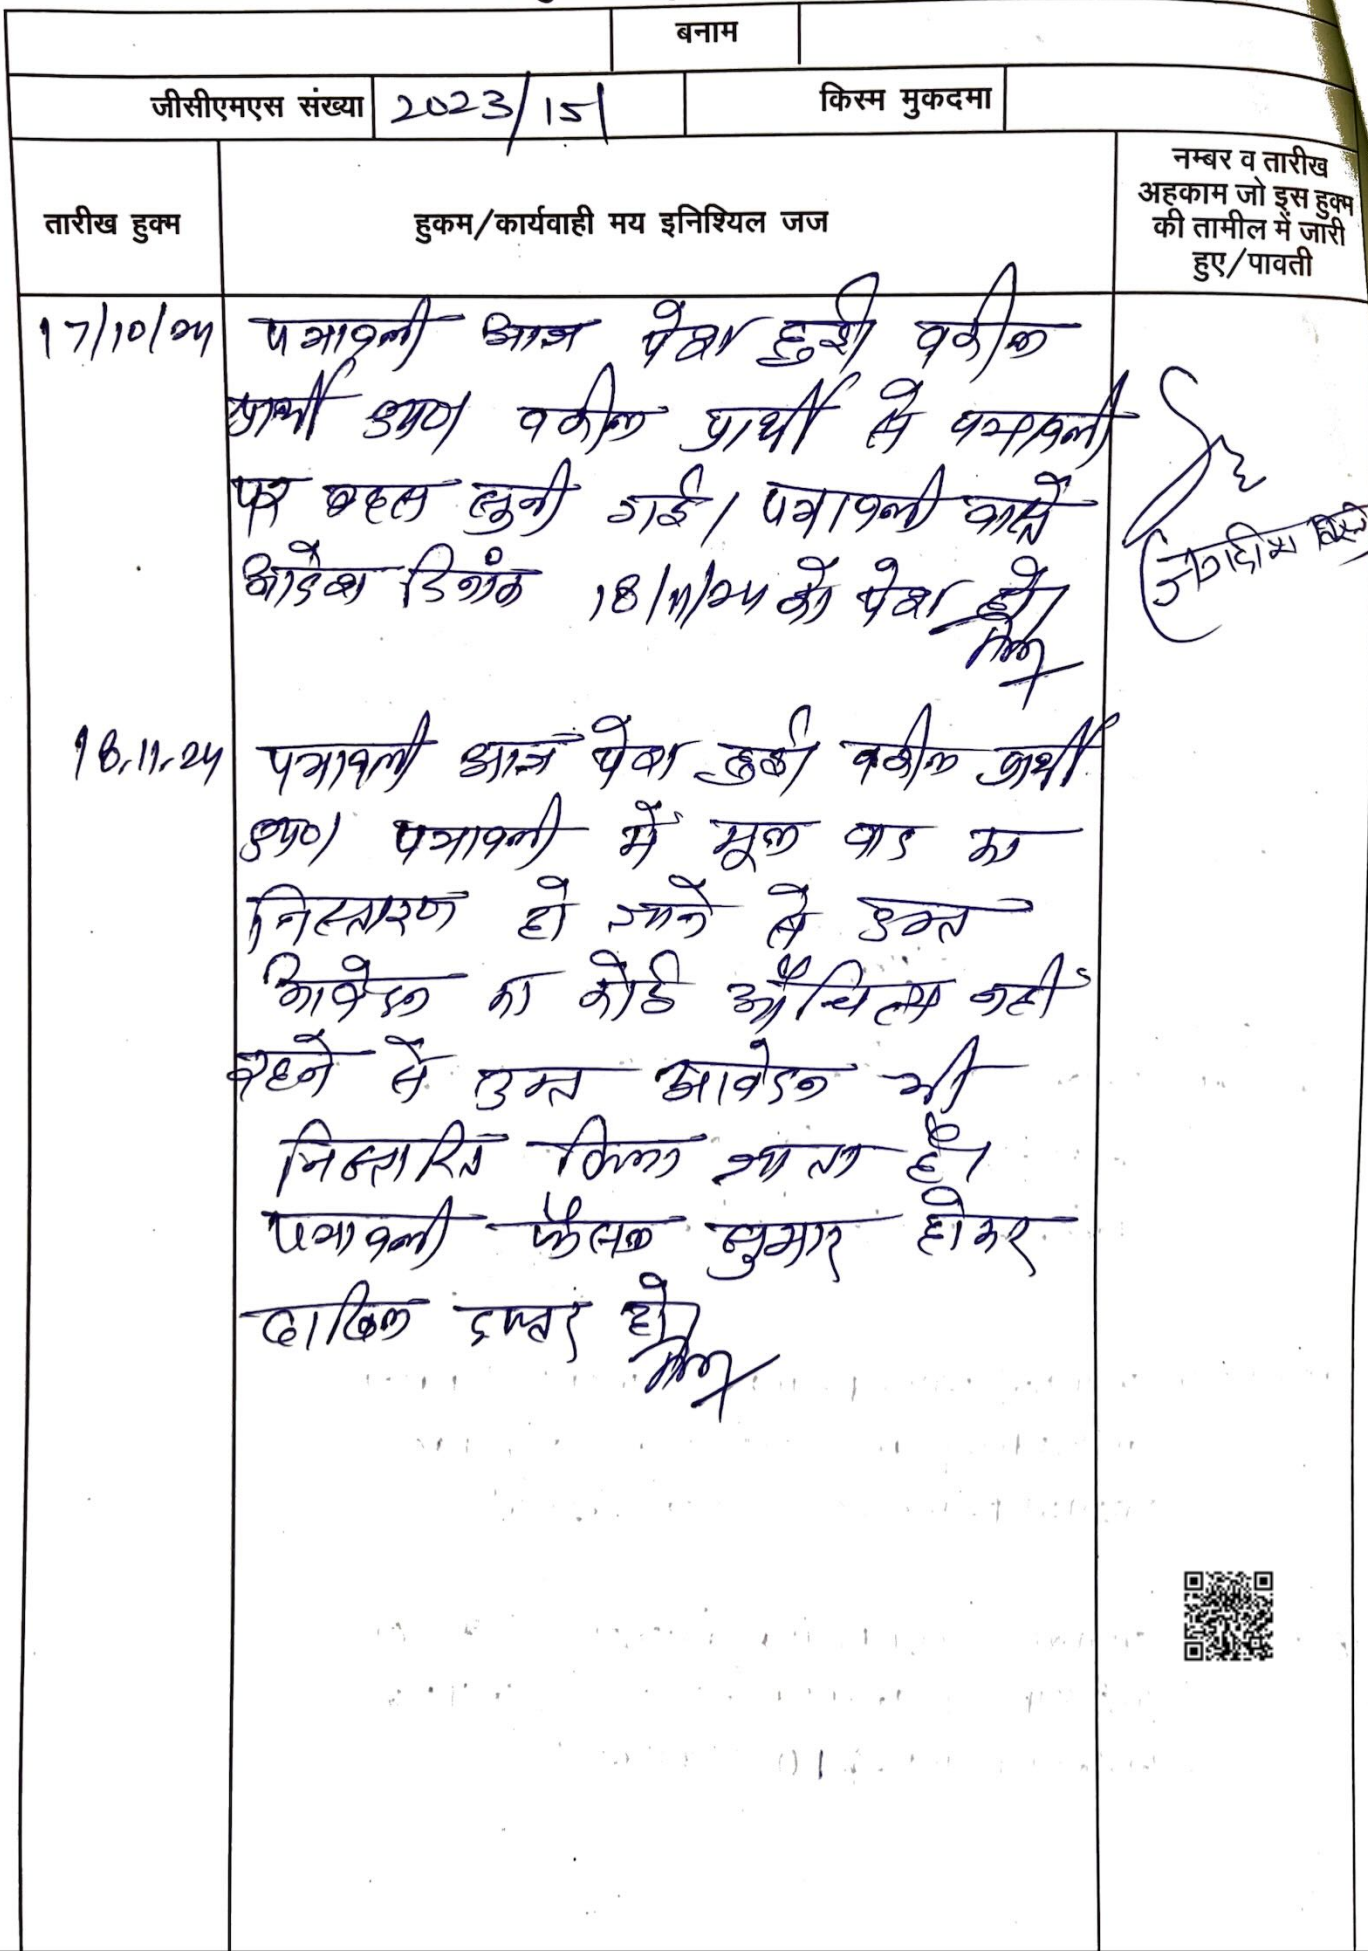 बनाम
जीसीएमएस संख्या 2023/151 किस्म मुकदमा
तारीख हुक्म
हुकम/कार्यवाही मय इनिश्यिल जज
नम्बर व तारीख
अहकाम जो इस हुक्म
की तामील में जारी
हुए/पावती
17/10/24 पत्रावली आज पेश हुयी वकील
प्रार्थी उप0। वकील प्रार्थी से पत्रावली
पर बहस सुनी गई। पत्रावली वास्ते
आदेश दिनांक 18/11/24 को पेश हो।
जगदीश
18.11.24 पत्रावली आज पेश हुई। वकील प्रार्थी
उप0। पत्रावली में मूल वाद का
निस्तारण हो जाने से उक्त
आवेदन का कोई औचित्य नहीं
रहने से उक्त आवेदन भी
निस्तारित किया जाता है।
पत्रावली फैसल शुमार होकर
दाखिल दफ्तर हो।